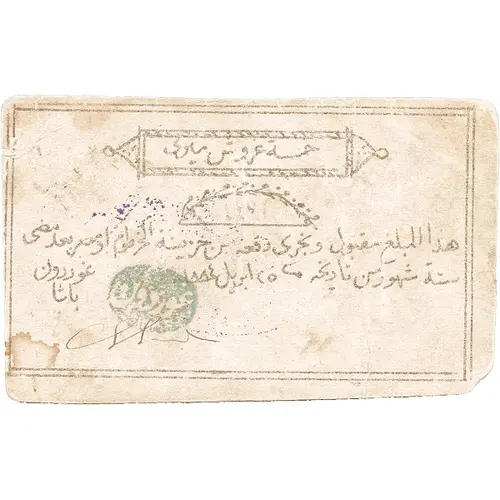 خمسة غروش ميري
هذا المبلغ مقبول ويجري دفعه من خزينة الخرطوم او مصر بعد مضي
ستة شهور من تاريخه ٢٥ ابريل ١٨٨٤ غوردون
باشا